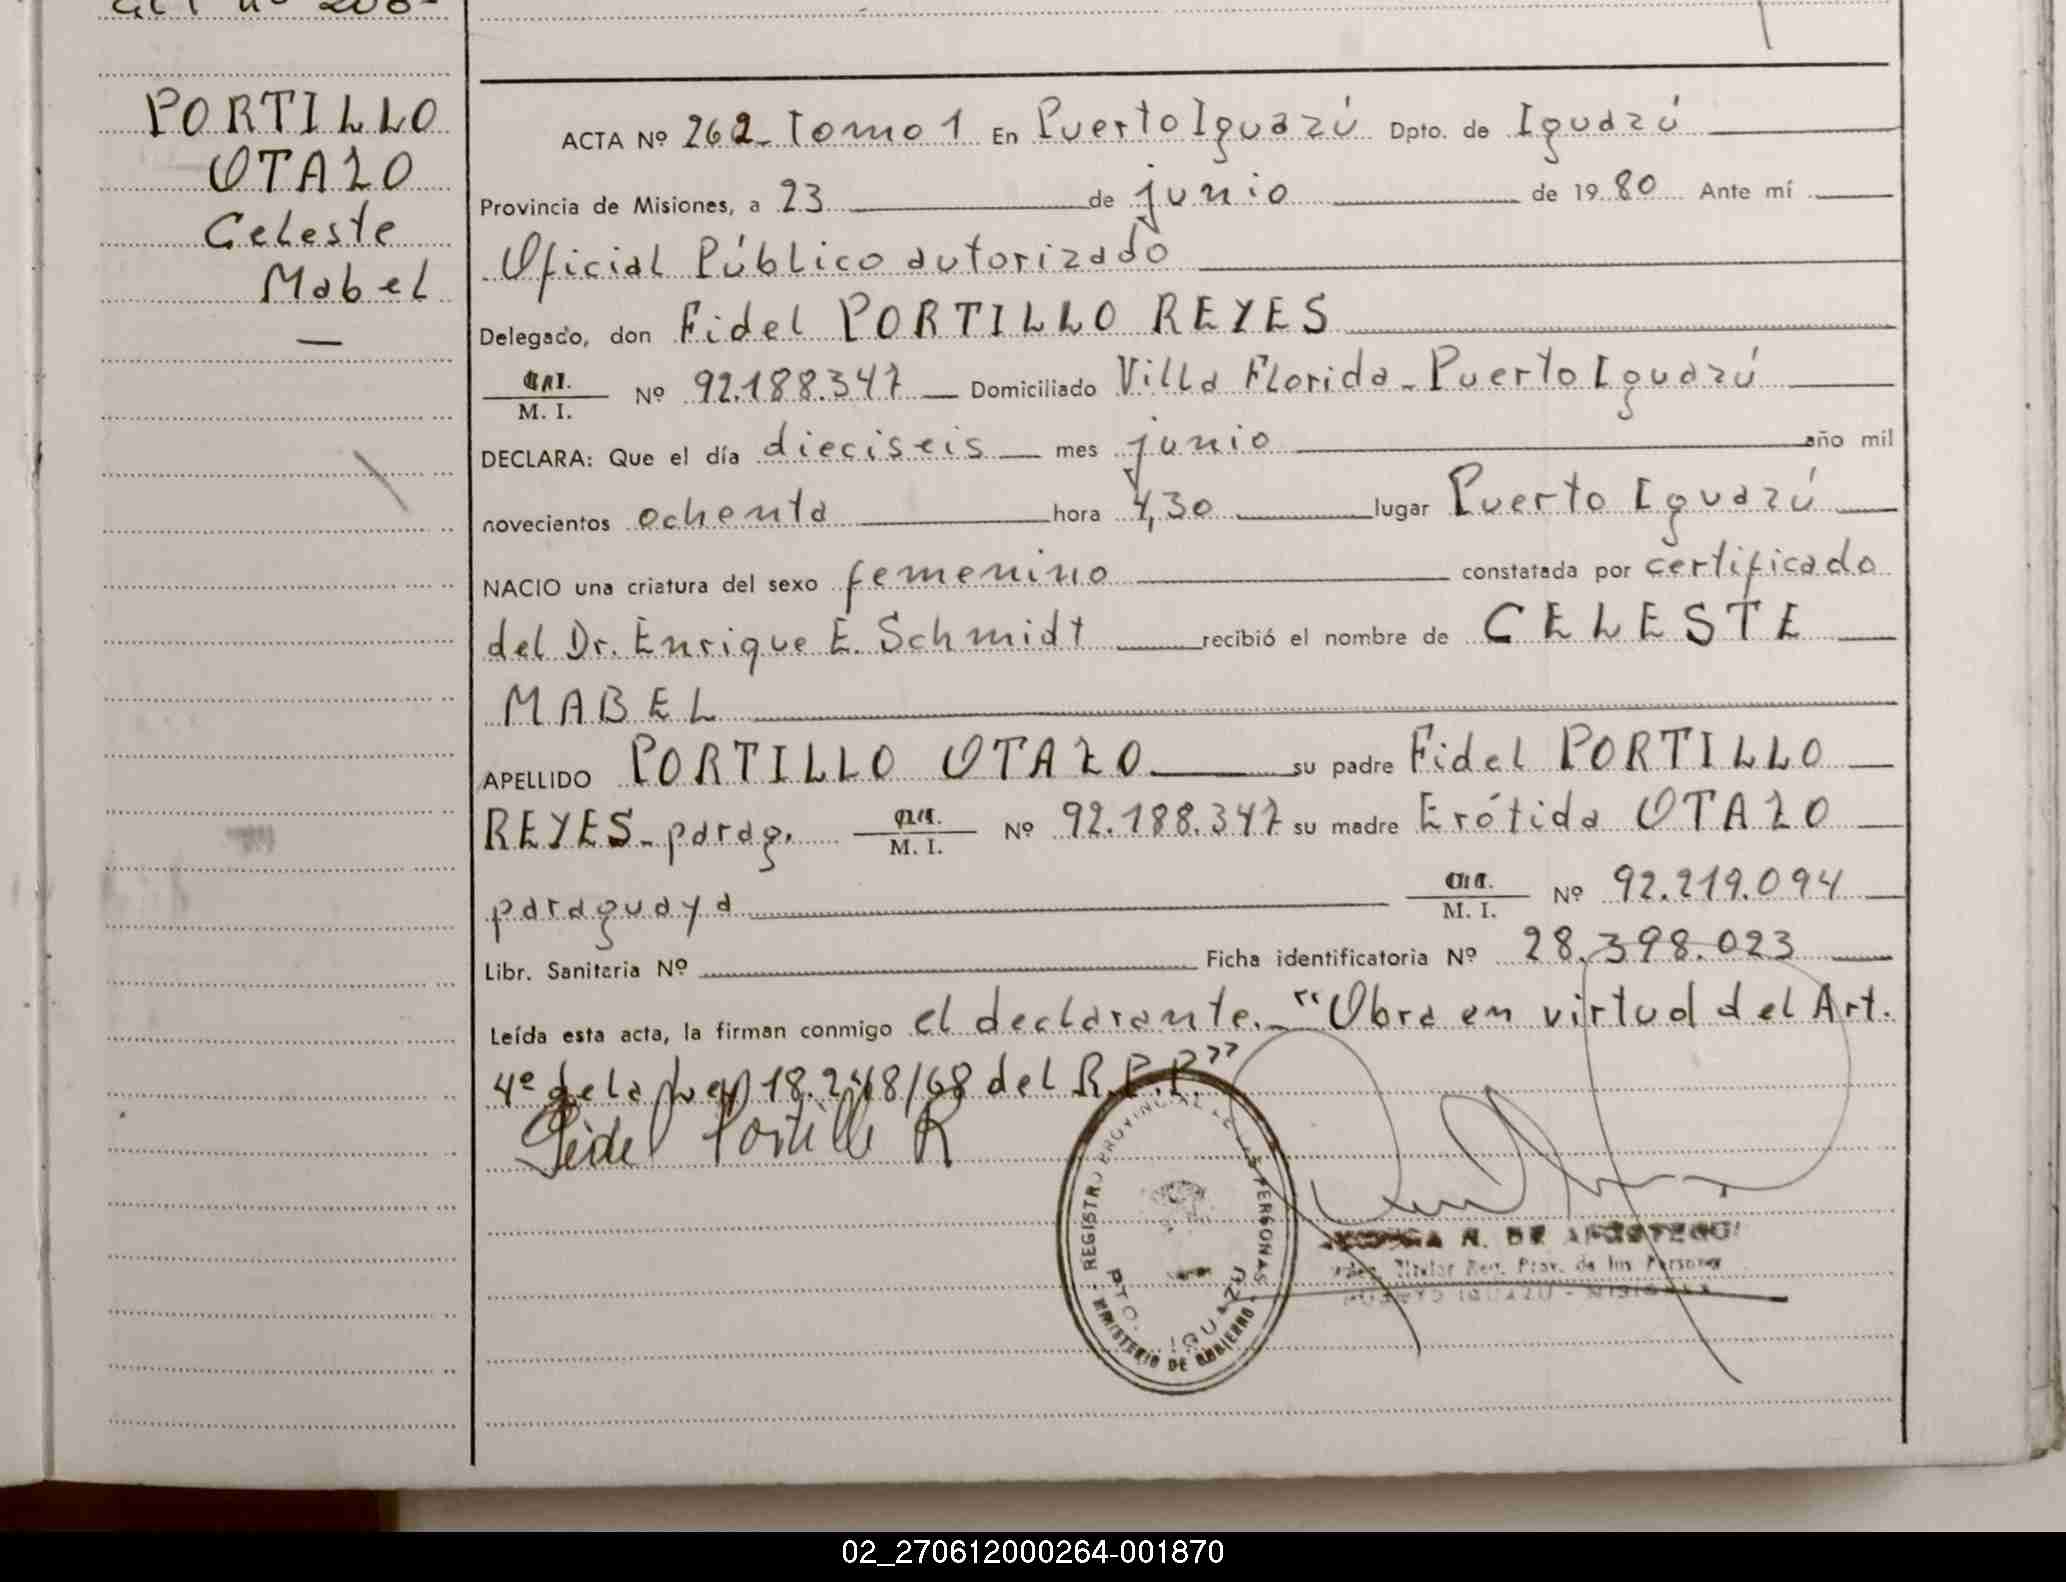 PORTILLO
OTAZO
Celeste
Mabel
ACTA Nº 262- Tomo 1 En Puerto Iguazú Dpto. de Iguazú
Provincia de Misiones, a 23 de junio de 1980 Ante mí
Oficial Público autorizado
Delegado, don Fidel PORTILLO REYES
M. I. Nº 92.188.347 Domiciliado Villa Florida - Puerto Iguazú
DECLARA: Que el día dieciseis mes junio año mil
novecientos ochenta hora 4,30 lugar Puerto Iguazú
NACIO una criatura del sexo femenino constatada por certificado
del Dr. Enrique E. Schmidt recibió el nombre de CELESTE
MABEL
APELLIDO PORTILLO OTAZO su padre Fidel PORTILLO
REYES - parag. M. I. Nº 92.188.347 su madre Erótida OTAZO
paraguaya M. I. Nº 92.219.094
Libr. Sanitaria Nº Ficha identificatoria Nº 28.398.023
Leída esta acta, la firman conmigo el declarante. - "Obra en virtud del Art.
4º de la Ley 18.248/68 del R.P.P."
Fidel Portillo R
REGISTRO PROVINCIAL DE LAS PERSONAS
PTO. IGUAZU
MINISTERIO DE GOBIERNO
N. DE
Titular Reg. Prov. de las Personas
IGUAZU - MISIONES
02_270612000264-001870